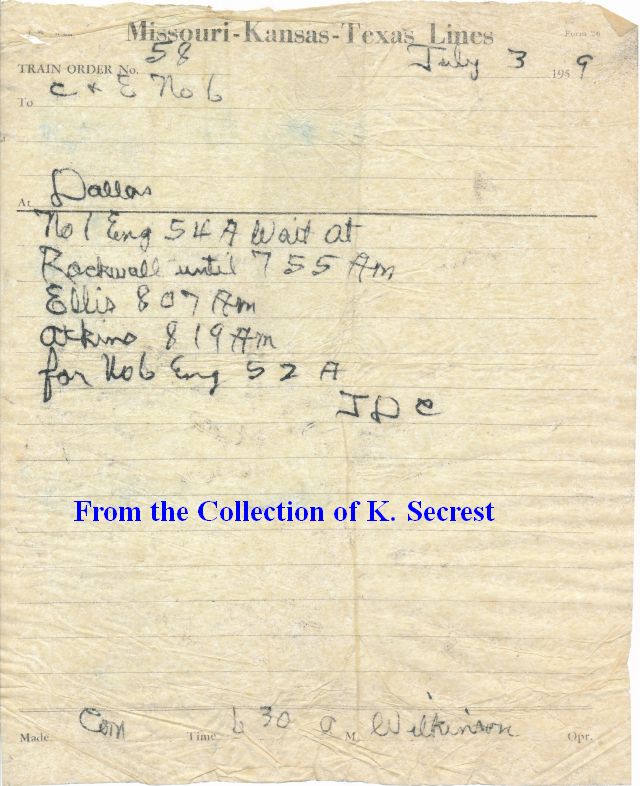 Missouri-Kansas-Texas Lines
Form 26
TRAIN ORDER No. 58 July 3 1959
To C & E No 6
At Dallas
No 1 Eng 54 A Wait at
Rockwall until 755 Am
Ellis 807 Am
Atkins 819 Am
for No 6 Eng 52 A
J D C
From the Collection of K. Secrest
Made Com Time 6 30 a M. Wilkinson Opr.